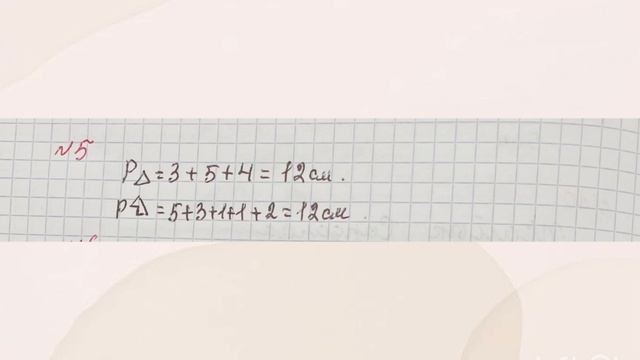 №5
P△ = 3 + 5 + 4 = 12 см.
P = 5 + 3 + 1 + 1 + 2 = 12 см.